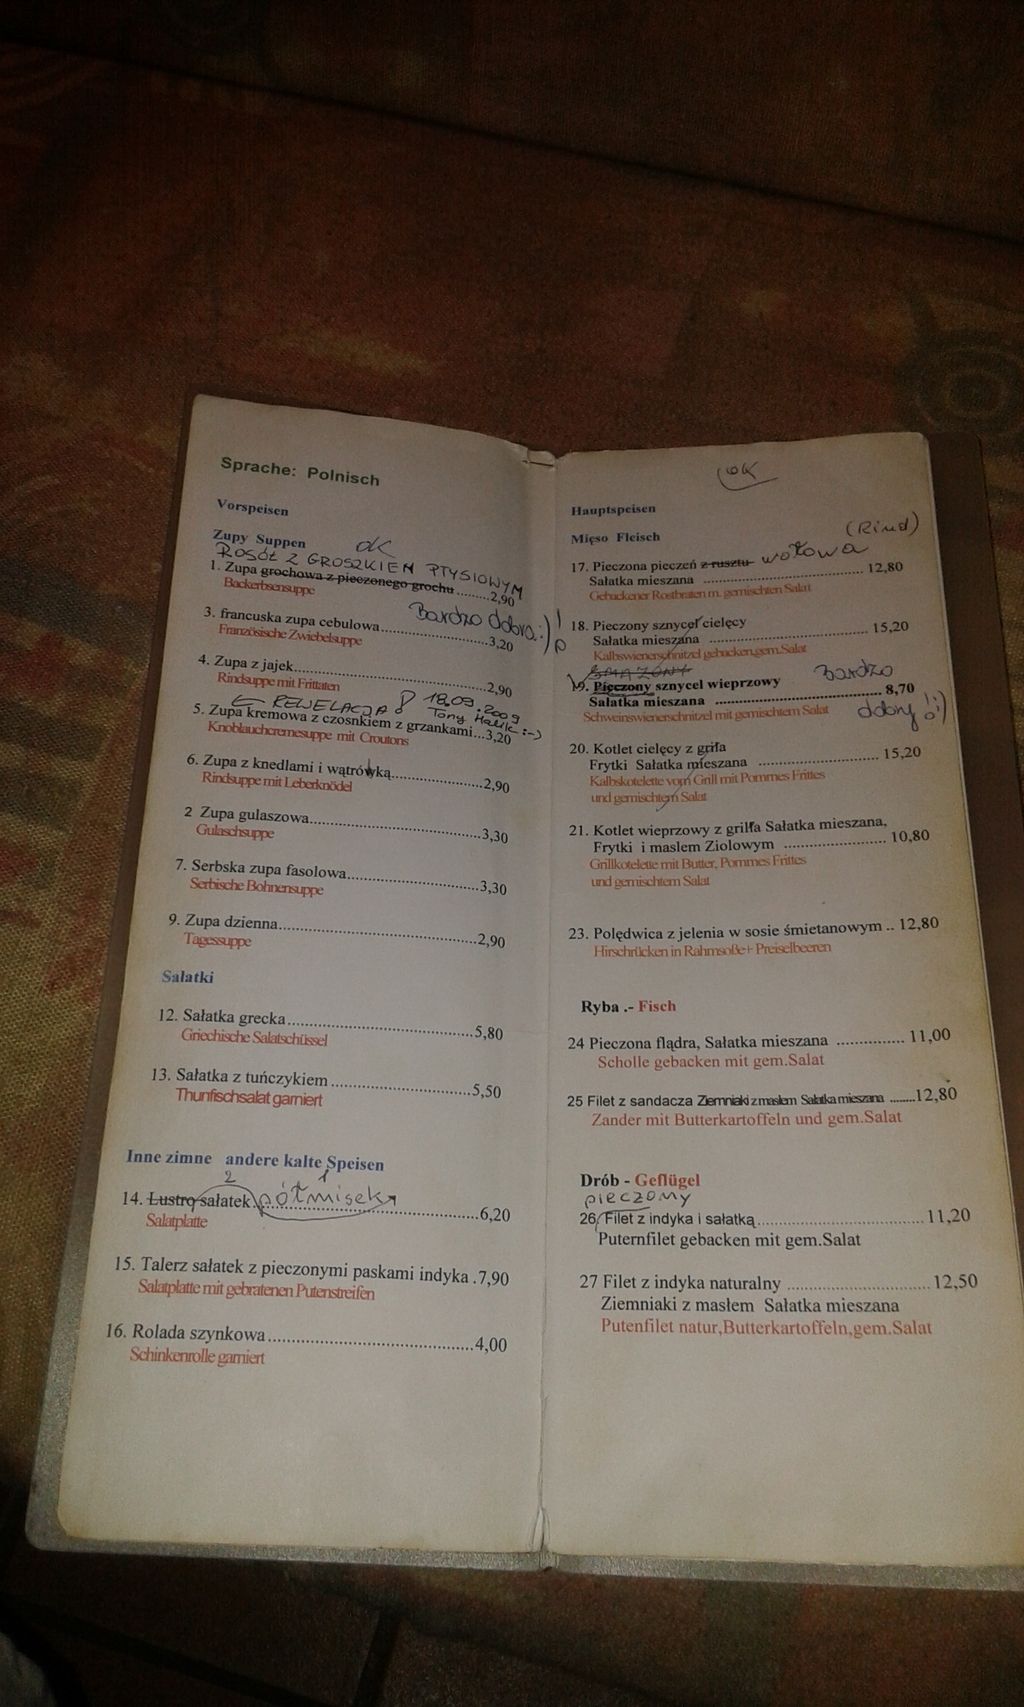 Sprache: Polnisch
Vorspeisen
Zupy Suppen OK
ROSÓŁ Z GROSZKIEM PTYSIOWYM
1. Zupa grochowa z pieczonego grochu.........2,90
Backerbsensuppe
Bardzo dobra :) !
3. francuska zupa cebulowa..........................3,20
Französische Zwiebelsuppe
4. Zupa z jajek................................................2,90
Rindsuppe mit Frittaten
← REWELACJA! 18.09.2009
Tony Halik :-)
5. Zupa kremowa z czosnkiem z grzankami...3,20
Knoblauchcremesuppe mit Croutons
6. Zupa z knedlami i wątrówką.......................2,90
Rindsuppe mit Leberknödel
2 Zupa gulaszowa...........................................3,30
Gulaschsuppe
7. Serbska zupa fasolowa.................................3,30
Serbische Bohnensuppe
9. Zupa dzienna.................................................2,90
Tagessuppe
Sałatki
12. Sałatka grecka..............................................5,80
Griechische Salatschüssel
13. Sałatka z tuńczykiem...................................5,50
Thunfischsalat garniert
Inne zimne andere kalte Speisen
2 1
14. Lustro sałatek półmisek ................................6,20
Salatplatte
15. Talerz sałatek z pieczonymi paskami indyka .7,90
Salatplatte mit gebratenen Putenstreifen
16. Rolada szynkowa..........................................4,00
Schinkenrolle garniert
OK
Hauptspeisen
Mięso Fleisch
(Rind)
17. Pieczona pieczeń z rusztu wołowa
Sałatka mieszana ...................................... 12,80
Gebackener Rostbraten m. gemischten Salat
18. Pieczony sznycel cielęcy
Sałatka mieszana ...................................... 15,20
Kalbswienerschnitzel gebacken,gem.Salat
SMAŻONY
19. Pieczony sznycel wieprzowy Bardzo
Sałatka mieszana ........................................ 8,70
dobry !:)
Schweinswienerschnitzel mit gemischtem Salat
20. Kotlet cielęcy z griła
Frytki Sałatka mieszana ............................. 15,20
Kalbskotelette vom Grill mit Pommes Frittes
und gemischtem Salat
21. Kotlet wieprzowy z griłła Sałatka mieszana,
Frytki i maslem Ziolowym ......................... 10,80
Grillkotelette mit Butter, Pommes Frittes
und gemischtem Salat
23. Polędwica z jelenia w sosie śmietanowym .. 12,80
Hirschrücken in Rahmsoße+ Preiselbeeren
Ryba .- Fisch
24 Pieczona flądra, Sałatka mieszana ............... 11,00
Scholle gebacken mit gem.Salat
25 Filet z sandacza Ziemniaki z masłem Sałatka mieszana ........12,80
Zander mit Butterkartoffeln und gem.Salat
Drób - Geflügel
pieczony
26 Filet z indyka i sałatką.....................................11,20
Puternfilet gebacken mit gem.Salat
27 Filet z indyka naturalny ................................12,50
Ziemniaki z masłem Sałatka mieszana
Putenfilet natur,Butterkartoffeln,gem.Salat